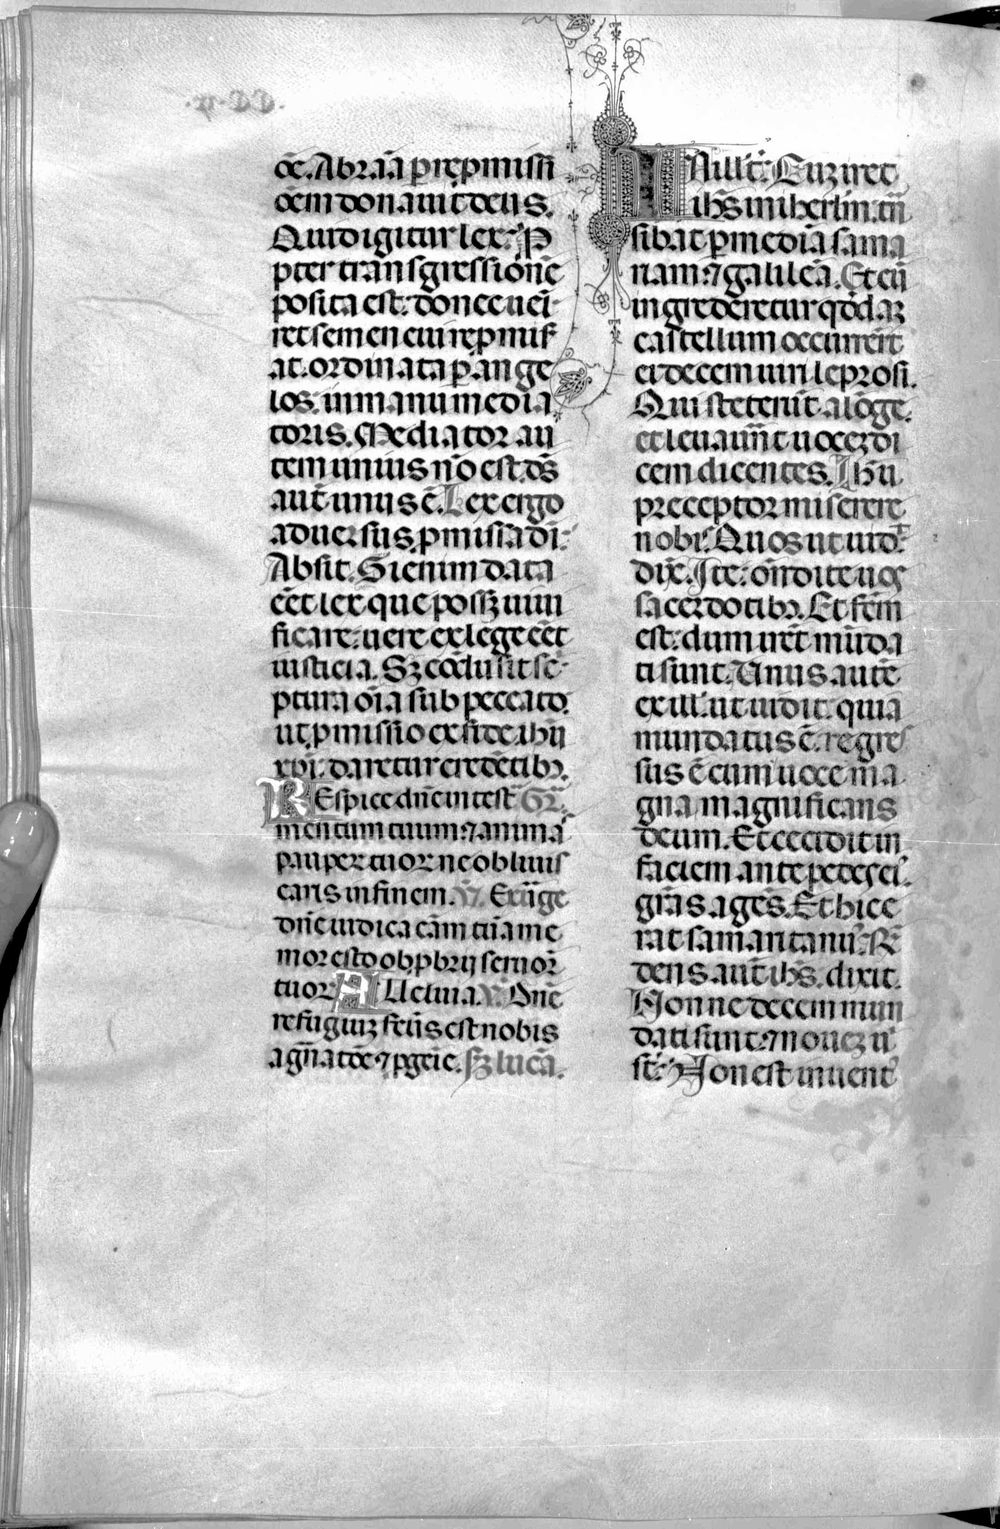 ōē. Abraā p̄ rep̄missi
ōem donauit deus.
Quid igitur lex: P
pter transgressionē
posita est: donec uei
ret semen cui rep̄mis
at. ordinata p̄ ange
los: in manu media
toris. Mediator au
tem unius nō est. dš
aut̄ unus ē. Lex ergo
aduersus p̄missa di:
Absit. Si enim data
eēt lex que possꝫ uiui
ficare: uere ex lege eēt
iusticia. Sꝫ cōclusit sc
ptura oīa sub peccato
ut p̄missio ex fide ihū
xp̄i. daretur credētibꝫ.
REspice dn̄e in test Gr̄.
mentum tuum: ⁊ anima
pauper tuor ne obliuis
caris in finem. V̄. Exūge
dn̄e iudica cām tuā me
mor esto obp̄brij seruor̄
tuor. Alleluia. V̄. Dn̄e
refugiuꝫ fcūs est nobis
a gn̄atōe ⁊ p̄genie. Sꝫ lucā.
IN illt̄: Cuꝫ iret
ihš in iherlm̄: tn̄
sibat p̄ mediā sama
riam: ⁊ galileā. Et cū
ingrederetur qōdaꝫ
castellum occurrer̄t
ei decem uiri leprosi.
Qui steterūt a lōge.
et leuauer̄t uoceꝫ di
cem dicentes. Ihū
preceptor miserere
nobis. Quos ut uid
dix̄. Ite: on̄dite uos
sacerdotibꝫ. Et fcm̄
est: dum irēt mūda
ti sunt. Unus autē
ex ill. ut uidit. quia
mundatus ē. regres
sus ē cum uoce ma
gna magnificans
deum. Et cecidit in
faciem ante pedes ei.
grās agēs. Et hic e
rat samaritanus. Re
dens aut̄ ihš. dixit.
Nonne decem mun
dati sunt: ⁊ noueꝫ u
st̄: Non est inuent